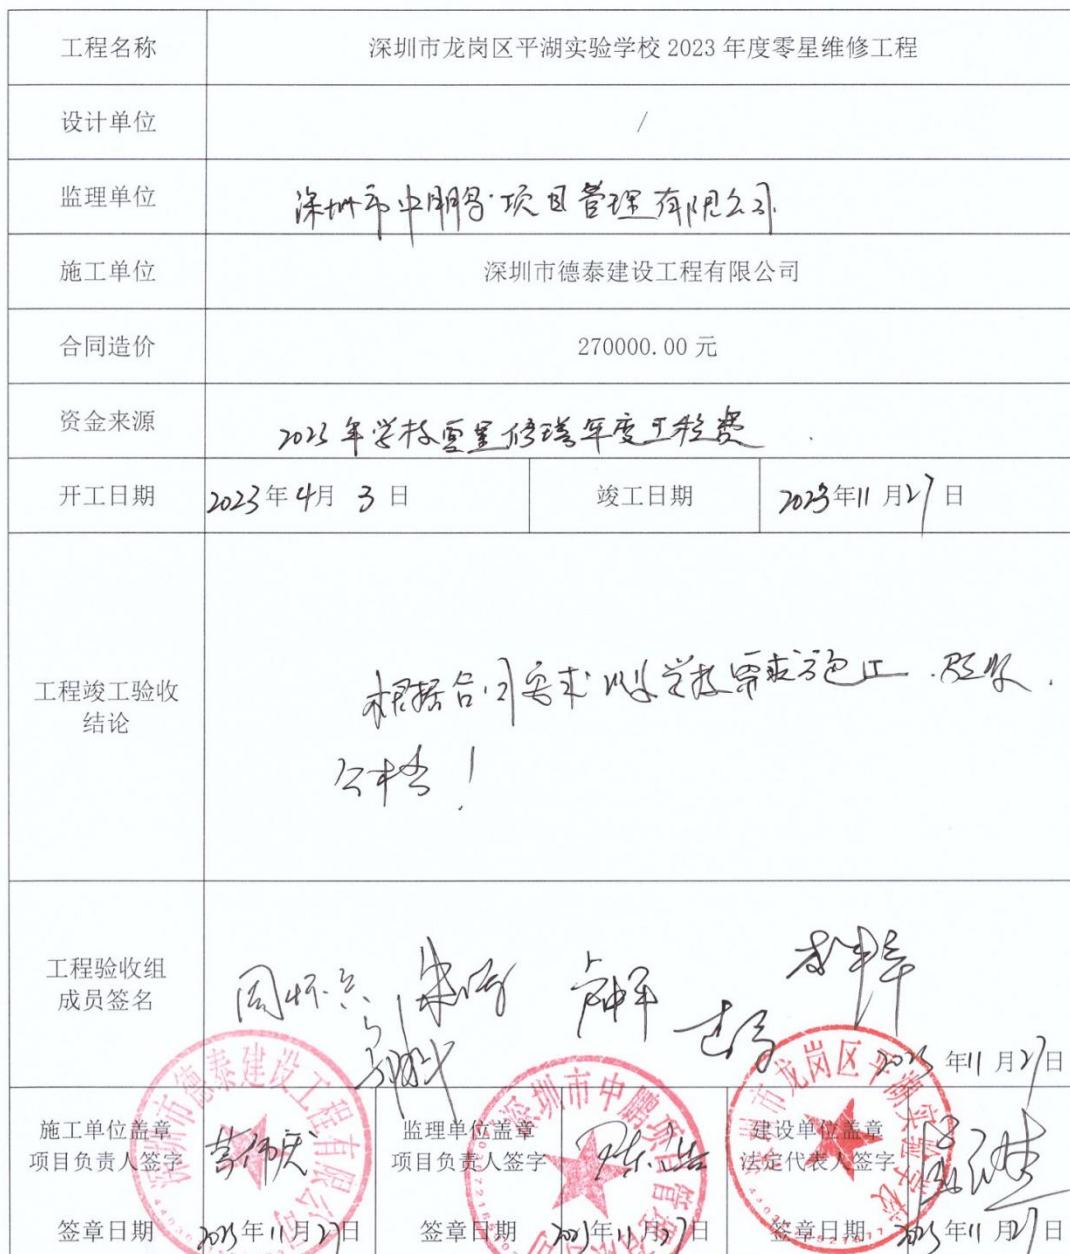 工程名称 深圳市龙岗区平湖实验学校 2023 年度零星维修工程
设计单位 /
监理单位 深圳市中鹏项目管理有限公司
施工单位 深圳市德泰建设工程有限公司
合同造价 270000.00 元
资金来源 2023年学校零星修缮年度工程费
开工日期 2023年4月 3 日 竣工日期 2023年11月27日
工程竣工验收
结论
根据合同要求 学校需求施工.验收
合格!
工程验收组
成员签名
2023 年11月27日
施工单位盖章
项目负责人签字
签章日期 2023年11月27日
监理单位盖章
项目负责人签字
签章日期 2023年11月27日
建设单位盖章
法定代表人签字
签章日期 2023年11月27日
深圳市德泰建设工程有限公司
深圳市中鹏项目管理有限公司
深圳市龙岗区平湖实验学校